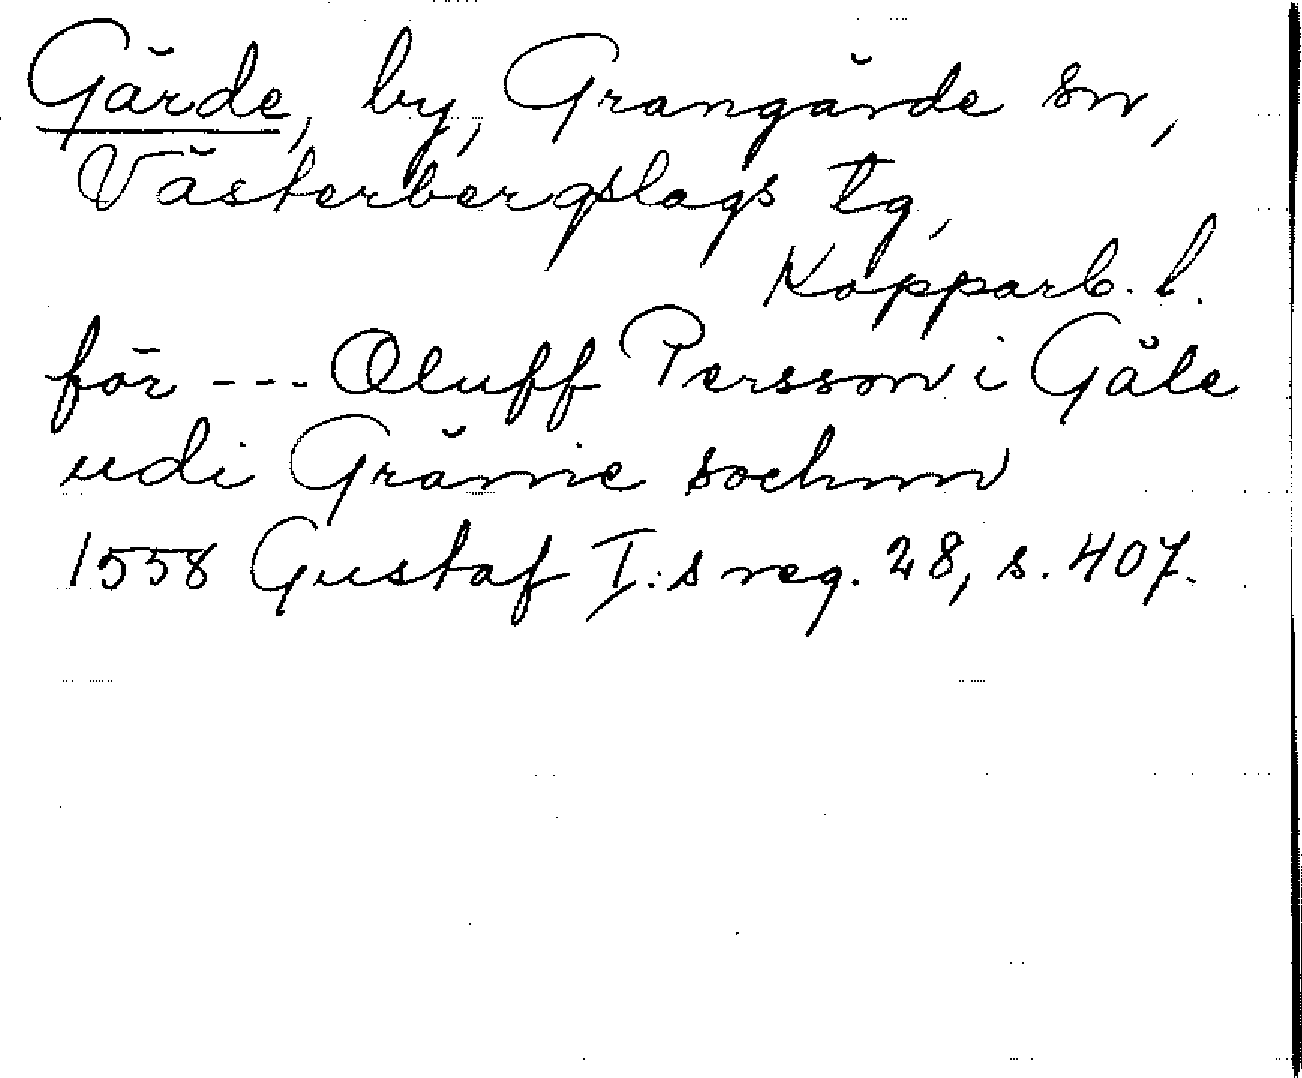 Gärde, by, Grangärde sn,
Västerbergslags tg,
Kopparb. l.
för --- Oluff Persson i Gäle
udi Gränie sochnn
1558 Gustaf I:s reg. 28, s. 407.